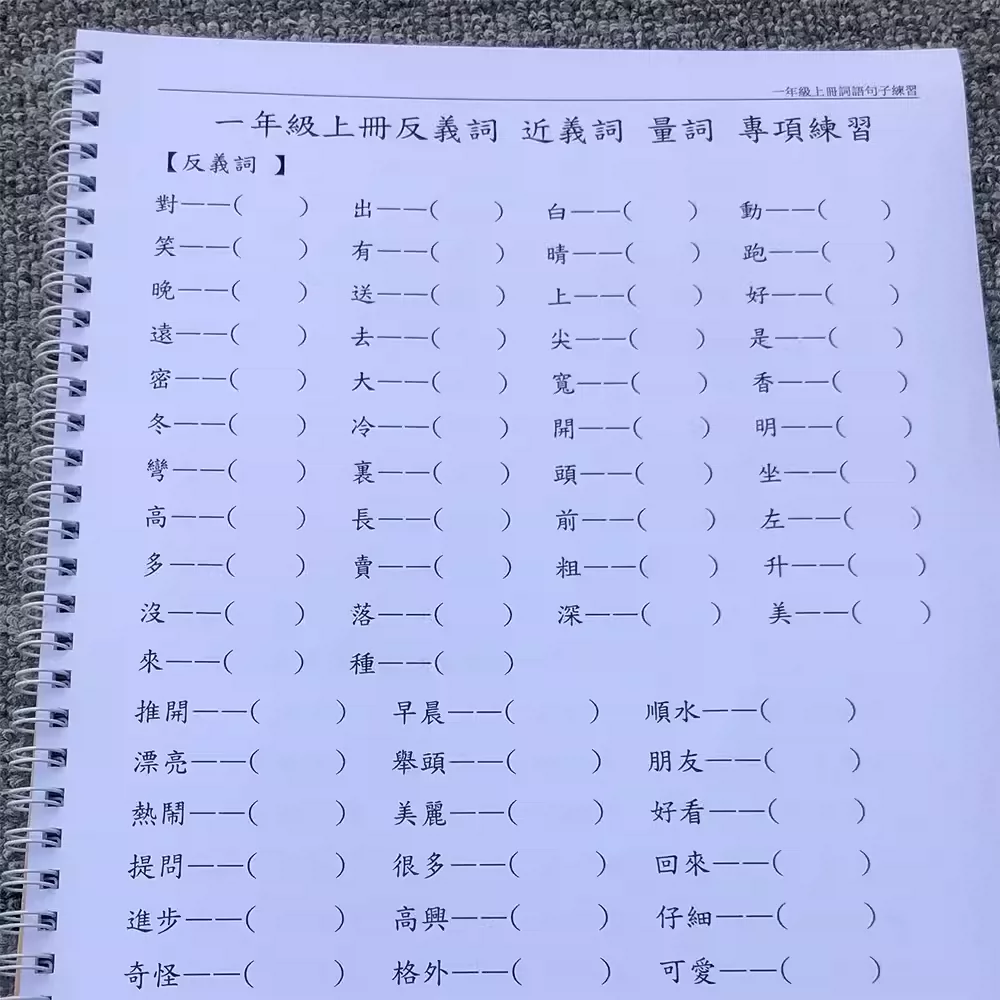 一年級上冊詞語句子練習
一年級上冊反義詞 近義詞 量詞 專項練習
【反義詞 】
對——(　　) 出——(　　) 白——(　　) 動——(　　)
笑——(　　) 有——(　　) 晴——(　　) 跑——(　　)
晚——(　　) 送——(　　) 上——(　　) 好——(　　)
遠——(　　) 去——(　　) 尖——(　　) 是——(　　)
密——(　　) 大——(　　) 寬——(　　) 香——(　　)
冬——(　　) 冷——(　　) 開——(　　) 明——(　　)
彎——(　　) 裏——(　　) 頭——(　　) 坐——(　　)
高——(　　) 長——(　　) 前——(　　) 左——(　　)
多——(　　) 賣——(　　) 粗——(　　) 升——(　　)
沒——(　　) 落——(　　) 深——(　　) 美——(　　)
來——(　　) 種——(　　)
推開——(　　) 早晨——(　　) 順水——(　　)
漂亮——(　　) 舉頭——(　　) 朋友——(　　)
熱鬧——(　　) 美麗——(　　) 好看——(　　)
提問——(　　) 很多——(　　) 回來——(　　)
進步——(　　) 高興——(　　) 仔細——(　　)
奇怪——(　　) 格外——(　　) 可愛——(　　)